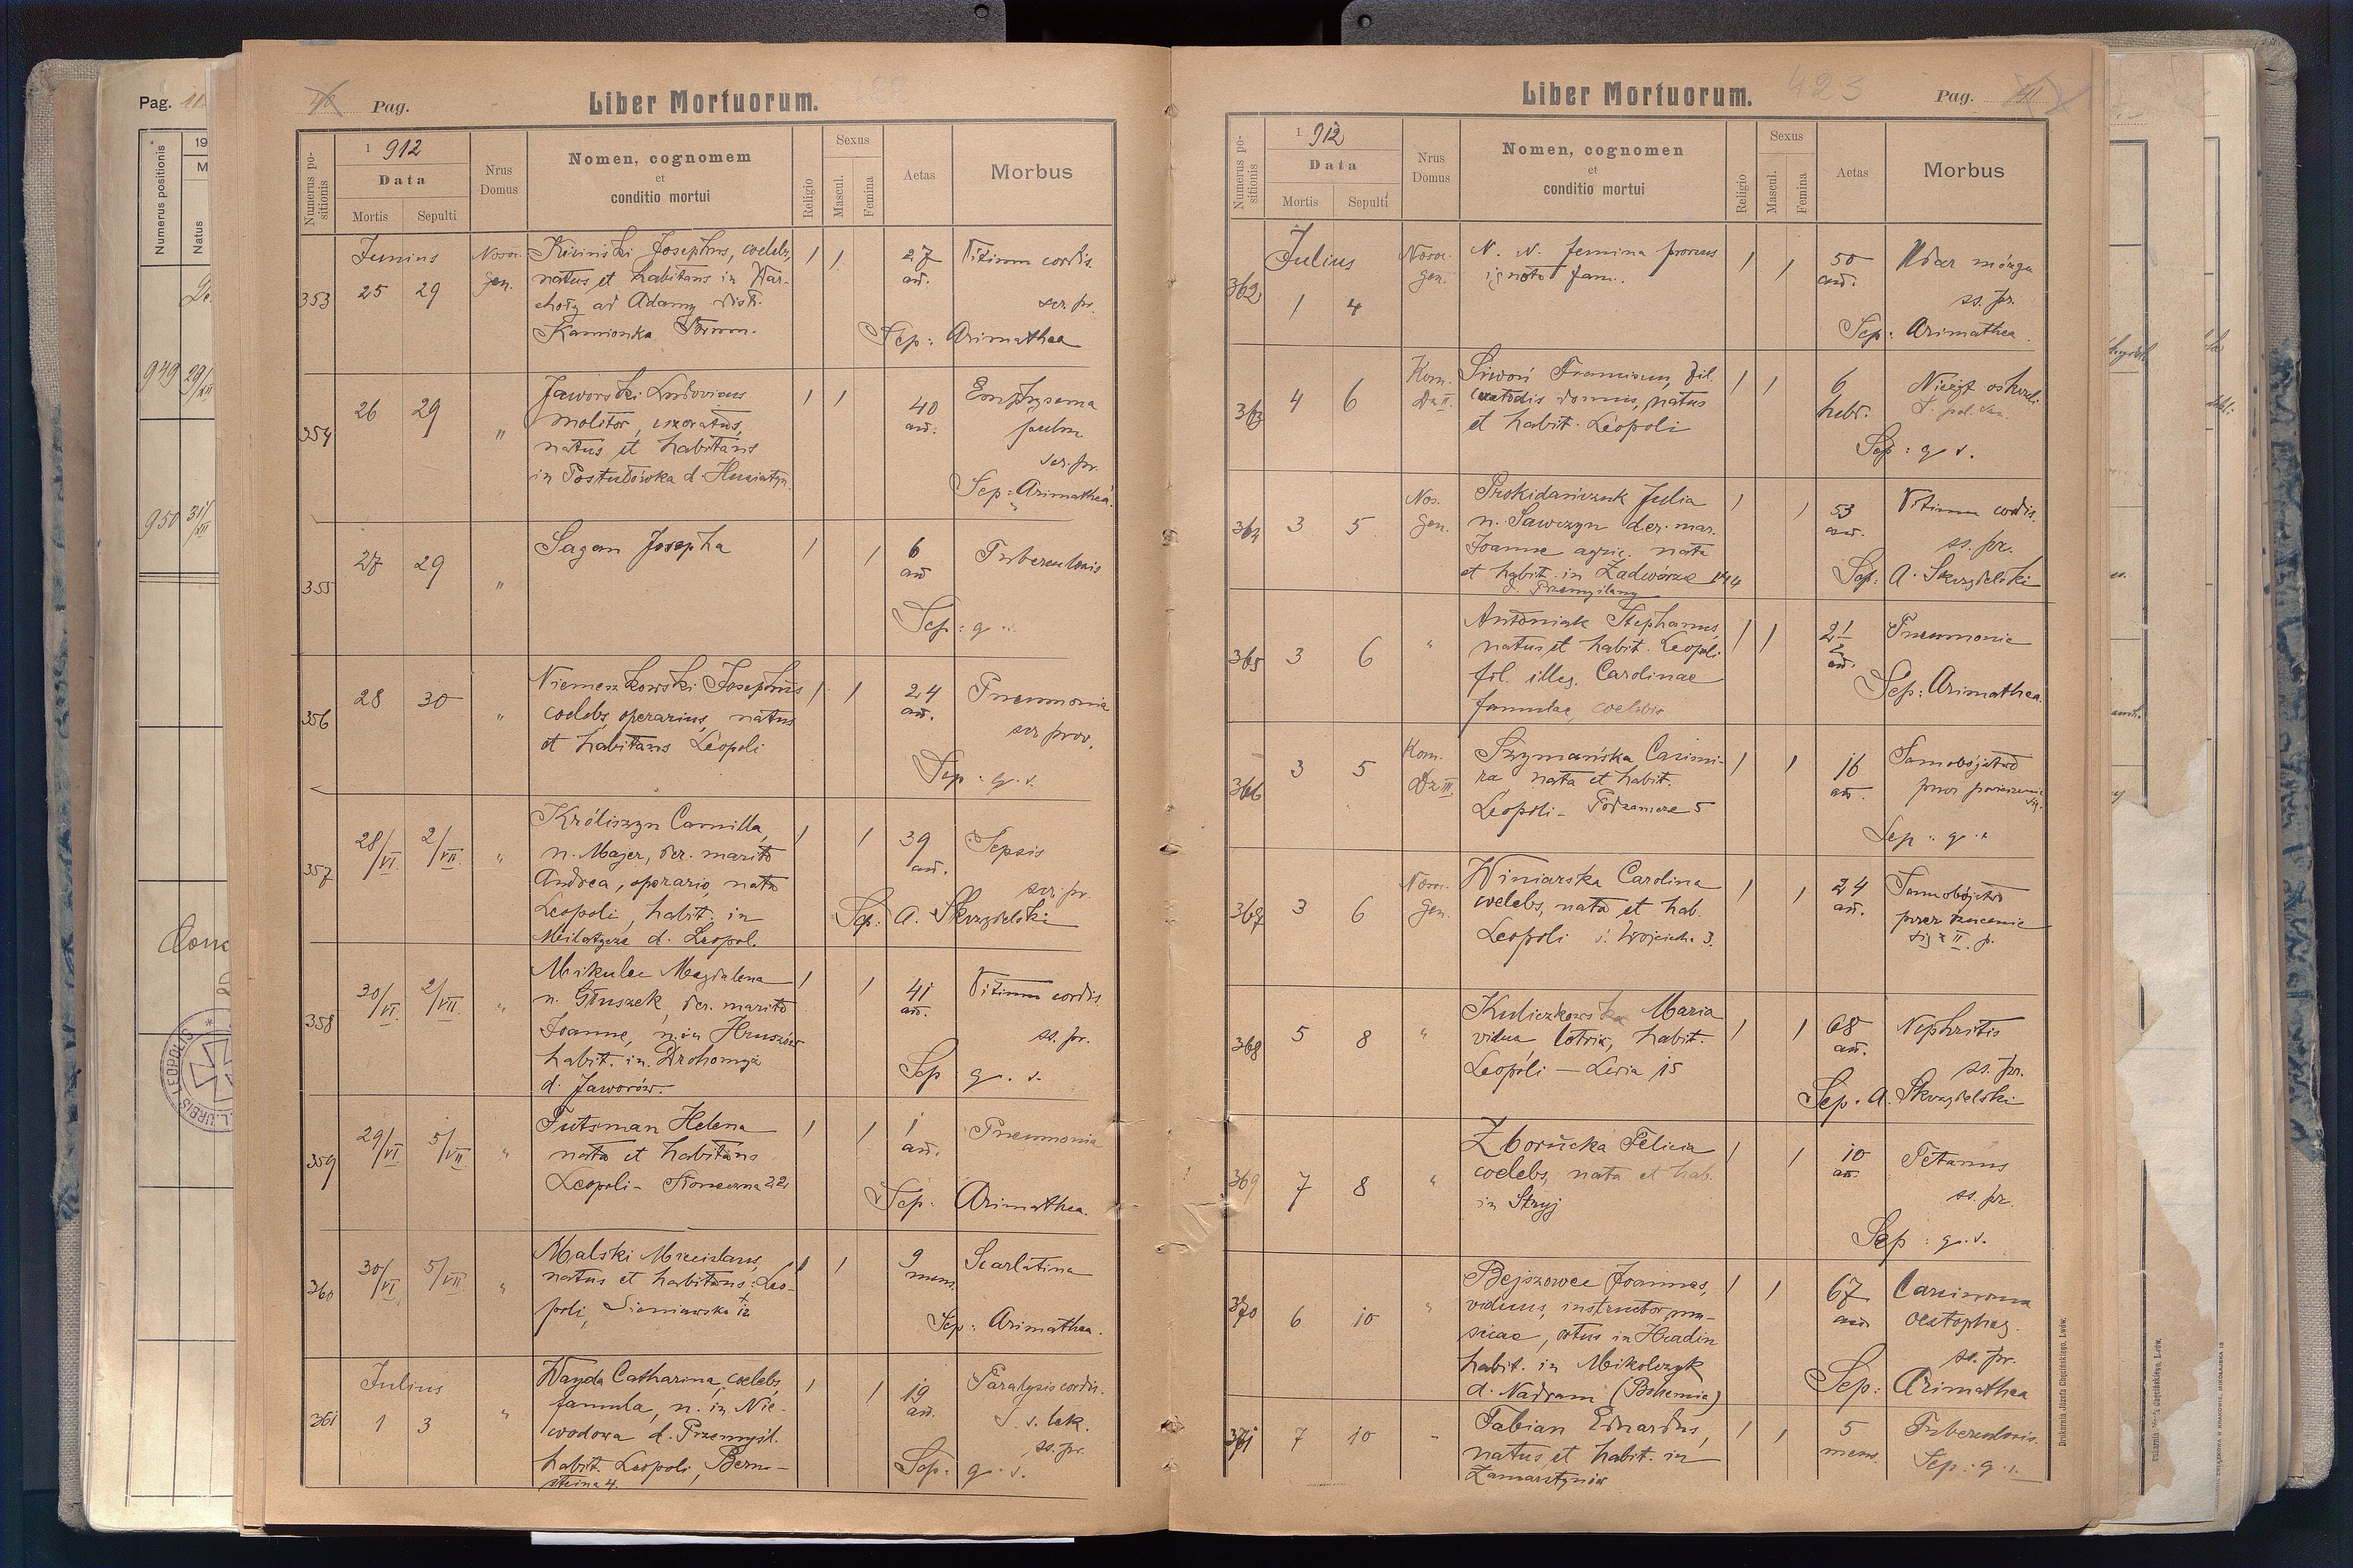 Pag. 11
Numerus positionis
19
M
Natus
949 29/XII
950 31/XII
40 Pag.
Liber Mortuorum.
Numerus positionis
1 912
Data
Mortis Sepulti
Nrus Domus
Nomen, cognomen
et
conditio mortui
Religio
Sexus
Mascul.
Femina
Aetas
Morbus
Junius
353 25 29 Nosoc. gen.
Kiciński Josephus, coelebs,
natus et habitans in
ad Adamy distr.
Kamionka Strum.
1 1 27 an. Vitium cordis.
scr. pr.
Sep: Arimathea
354 26 29 "
Jaworski Ludovicus
molitor, uxoratus,
natus et habitans
in Postułówka d. Husiatyn.
1 1 40 an. Emphysema
pulm
scr. pr.
Sep: Arimathea.
355 27 29 "
Sagan Josepha
1 1 6 an Tuberculosis
Sep: g. s.
356 28 30 "
Niemeszkowski Josephus
coelebs, operarius, natus
et habitans Leopoli
1 1 24 an. Pneumonia
scr prov.
Sep: g. s.
357 28/VI. 2/VII. "
Króliszyn Camilla,
n. Majer, der. marito
Andrea, operario, nata
Leopoli, habit. in
d. Leopol.
1 1 39 an. Sepsis
scr. pr.
Sep: A. Skrzydelski
358 30/VI. 2/VII. "
Mikulec Magdalena
n. Głuszek, der. marito
Joanne, n. in Hruszów
habit. in Drohomyśl
d. Jaworów.
1 1 41 an. Vitium cordis.
ss. pr.
Sep g. s.
359 29/VI 5/VII "
Putsman Helena
nata et habitans
Leopoli - Słoneczna 22
1 1 1 an. Pneumonia
Sep: Arimathea.
360 30/VI. 5/VII "
Malski Miecislaus,
natus et habitans Leo-
poli, Sieniawska 12
1 1 9 mens. Scarlatina
Sep: Arimathea.
Julius
361 1 3 "
Wayda Catharina, coelebs,
famula, n. in Nie-
wodowa d. Przemyśl.
habit. Leopoli, Bern-
steina 4.
1 1 19 an. Paralysis cordis.
S. s. lek.
ss. pr.
Sep: g. s.
Liber Mortuorum.
423
Pag. 41
Numerus positionis
1 912
Data
Mortis Sepulti
Nrus Domus
Nomen, cognomen
et
conditio mortui
Religio
Sexus
Mascul.
Femina
Aetas
Morbus
Julius
362 1 4 Nosoc. gen.
N. N. femina prorsus
ignota fam.
1 1 50 an. Udar mózgu
ss. pr.
Sep: Arimathea.
363 4 6 Kom. Dz II.
Siwoń Franciscus, fil.
custodis domus, natus
et habit. Leopoli
1 1 6 hebr. Nieżyt oskrzeli
Sep: g. s.
364 3 5 Nos. gen.
Prokidaniczuk Julia
n. Sawczyn der. mar.
Joanne agric. nata
et habit. in Zadwórze 144
d. Przemyślany
1 1 53 an. Vitium cordis.
ss. pr.
Sep: A. Skrzydelski
365 3 6 "
Antoniak Stephanus,
natus et habit. Leopoli
fil. illeg. Carolinae
famulae, coelebis
1 1 2 1/2 an. Pneumonia
Sep: Arimathea.
366 3 5 Kom. Dz III.
Szymańska Casimi-
ra nata et habit.
Leopoli - Podzamcze 5
1 1 16 an. Samobójstwo
przez powieszenie
się.
Sep: g. s.
367 3 6 Nosoc. gen.
Winiarska Carolina
coelebs, nata et hab.
Leopoli ś. Wojciecha 3.
1 1 24 an. Samobójstwo
przez rzucenie
się z II. p.
368 5 8 "
Kuliczkowska Maria
vidua lotrix, habit.
Leopoli — Lwia 15
1 1 68 an. Nephritis
ss. pr.
Sep. A. Skrzydelski
369 7 8 "
Zborucka Felicia
coelebs, nata et hab.
in Stryj
1 1 10 an. Tetanus
ss. pr.
Sep: g. s.
370 6 10 "
Bejszowec Joannes,
viduus, instructor mu-
sicae, ortus in Hradin
habit. in Mikolczyk
d. Nadram (Bohemia)
1 1 67 an. Carcinoma
oesophag.
ss. pr.
Sep: Arimathea
371 7 10 "
Fabian Eduardus,
natus et habit. in
Zamarstynów
1 1 5 mens. Tuberculosis.
Sep: g. s.
Drukarnia Józefa Chęcińskiego, Lwów.